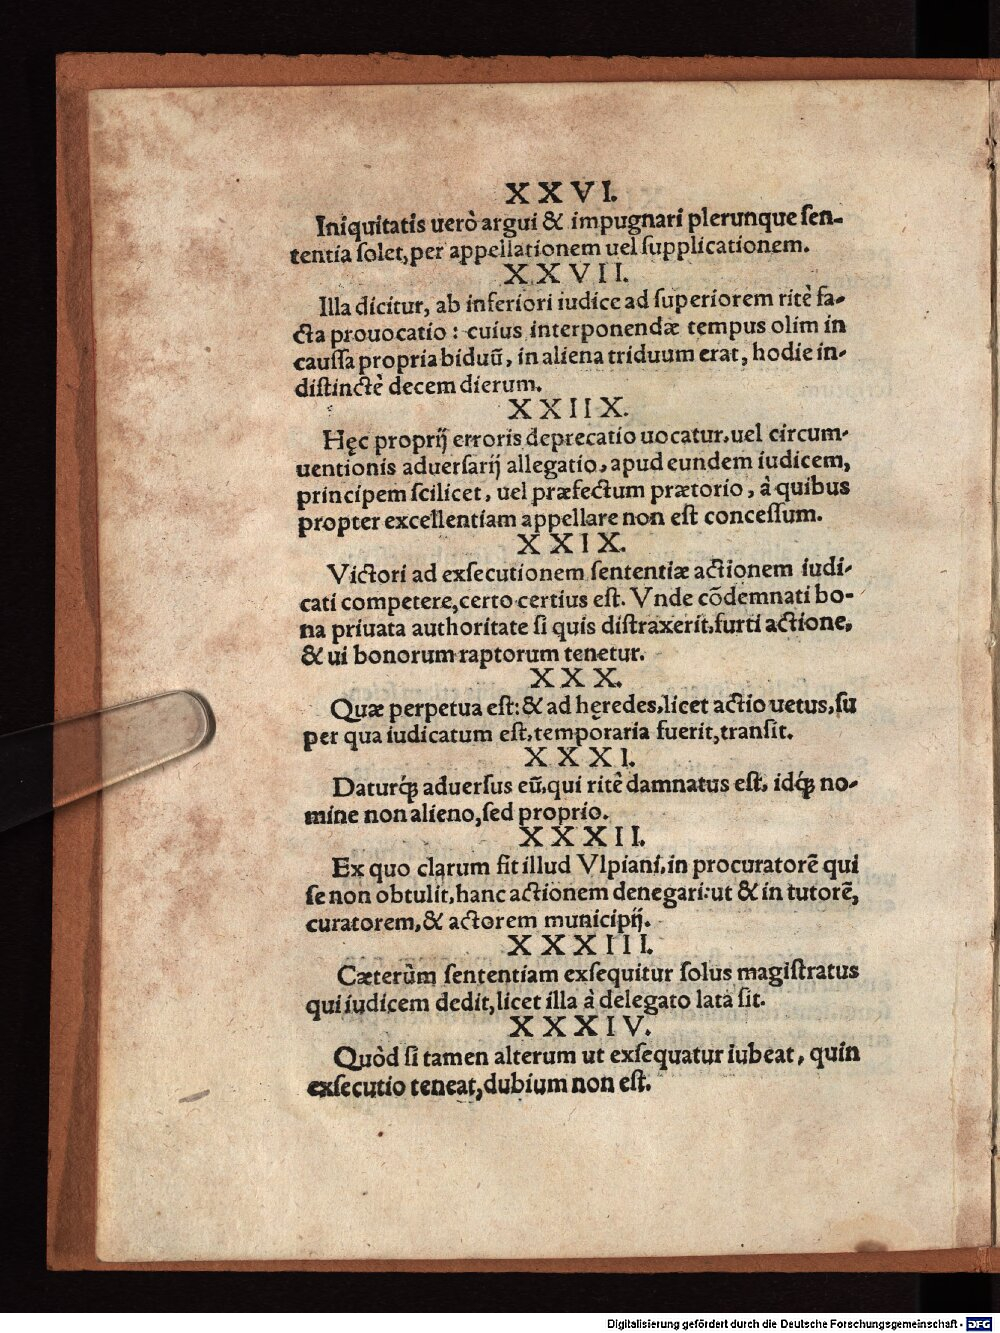 XXVI.
Iniquitatis uerò argui & impugnari plerunque ſen-
tentia ſolet, per appellationem uel ſupplicationem.
XXVII.
Illa dicitur, ab inferiori iudice ad ſuperiorem ritè fa-
cta prouocatio: cuius interponendæ tempus olim in
cauſſa propria biduũ, in aliena triduum erat, hodie in-
diſtinctè decem dierum.
XXIIX.
Hęc proprij erroris deprecatio uocatur, uel circum-
uentionis aduerſarij allegatio, apud eundem iudicem,
principem ſcilicet, uel præfectum prætorio, à quibus
propter excellentiam appellare non eſt conceſſum.
XXIX.
Victori ad exſecutionem ſententiæ actionem iudi-
cati competere, certo certius eſt. Vnde cõdemnati bo-
na priuata authoritate ſi quis diſtraxerit, furti actione,
& ui bonorum raptorum tenetur.
XXX.
Quæ perpetua eſt: & ad hęredes, licet actio uetus, ſu
per qua iudicatum eſt, temporaria fuerit, tranſit.
XXXI.
Daturq́ꝫ aduerſus eũ, qui ritè damnatus eſt, idq́ꝫ no-
mine non alieno, ſed proprio.
XXXII.
Ex quo clarum fit illud Vlpiani, in procuratorẽ qui
ſe non obtulit, hanc actionem denegari: ut & in tutorẽ,
curatorem, & actorem municipij.
XXXIII.
Cæterùm ſententiam exſequitur ſolus magiſtratus
qui iudicem dedit, licet illa à delegato lata ſit.
XXXIV.
Quòd ſi tamen alterum ut exſequatur iubeat, quin
exſecutio teneat, dubium non eſt.
Digitalisierung gefördert durch die Deutsche Forschungsgemeinschaft - DFG